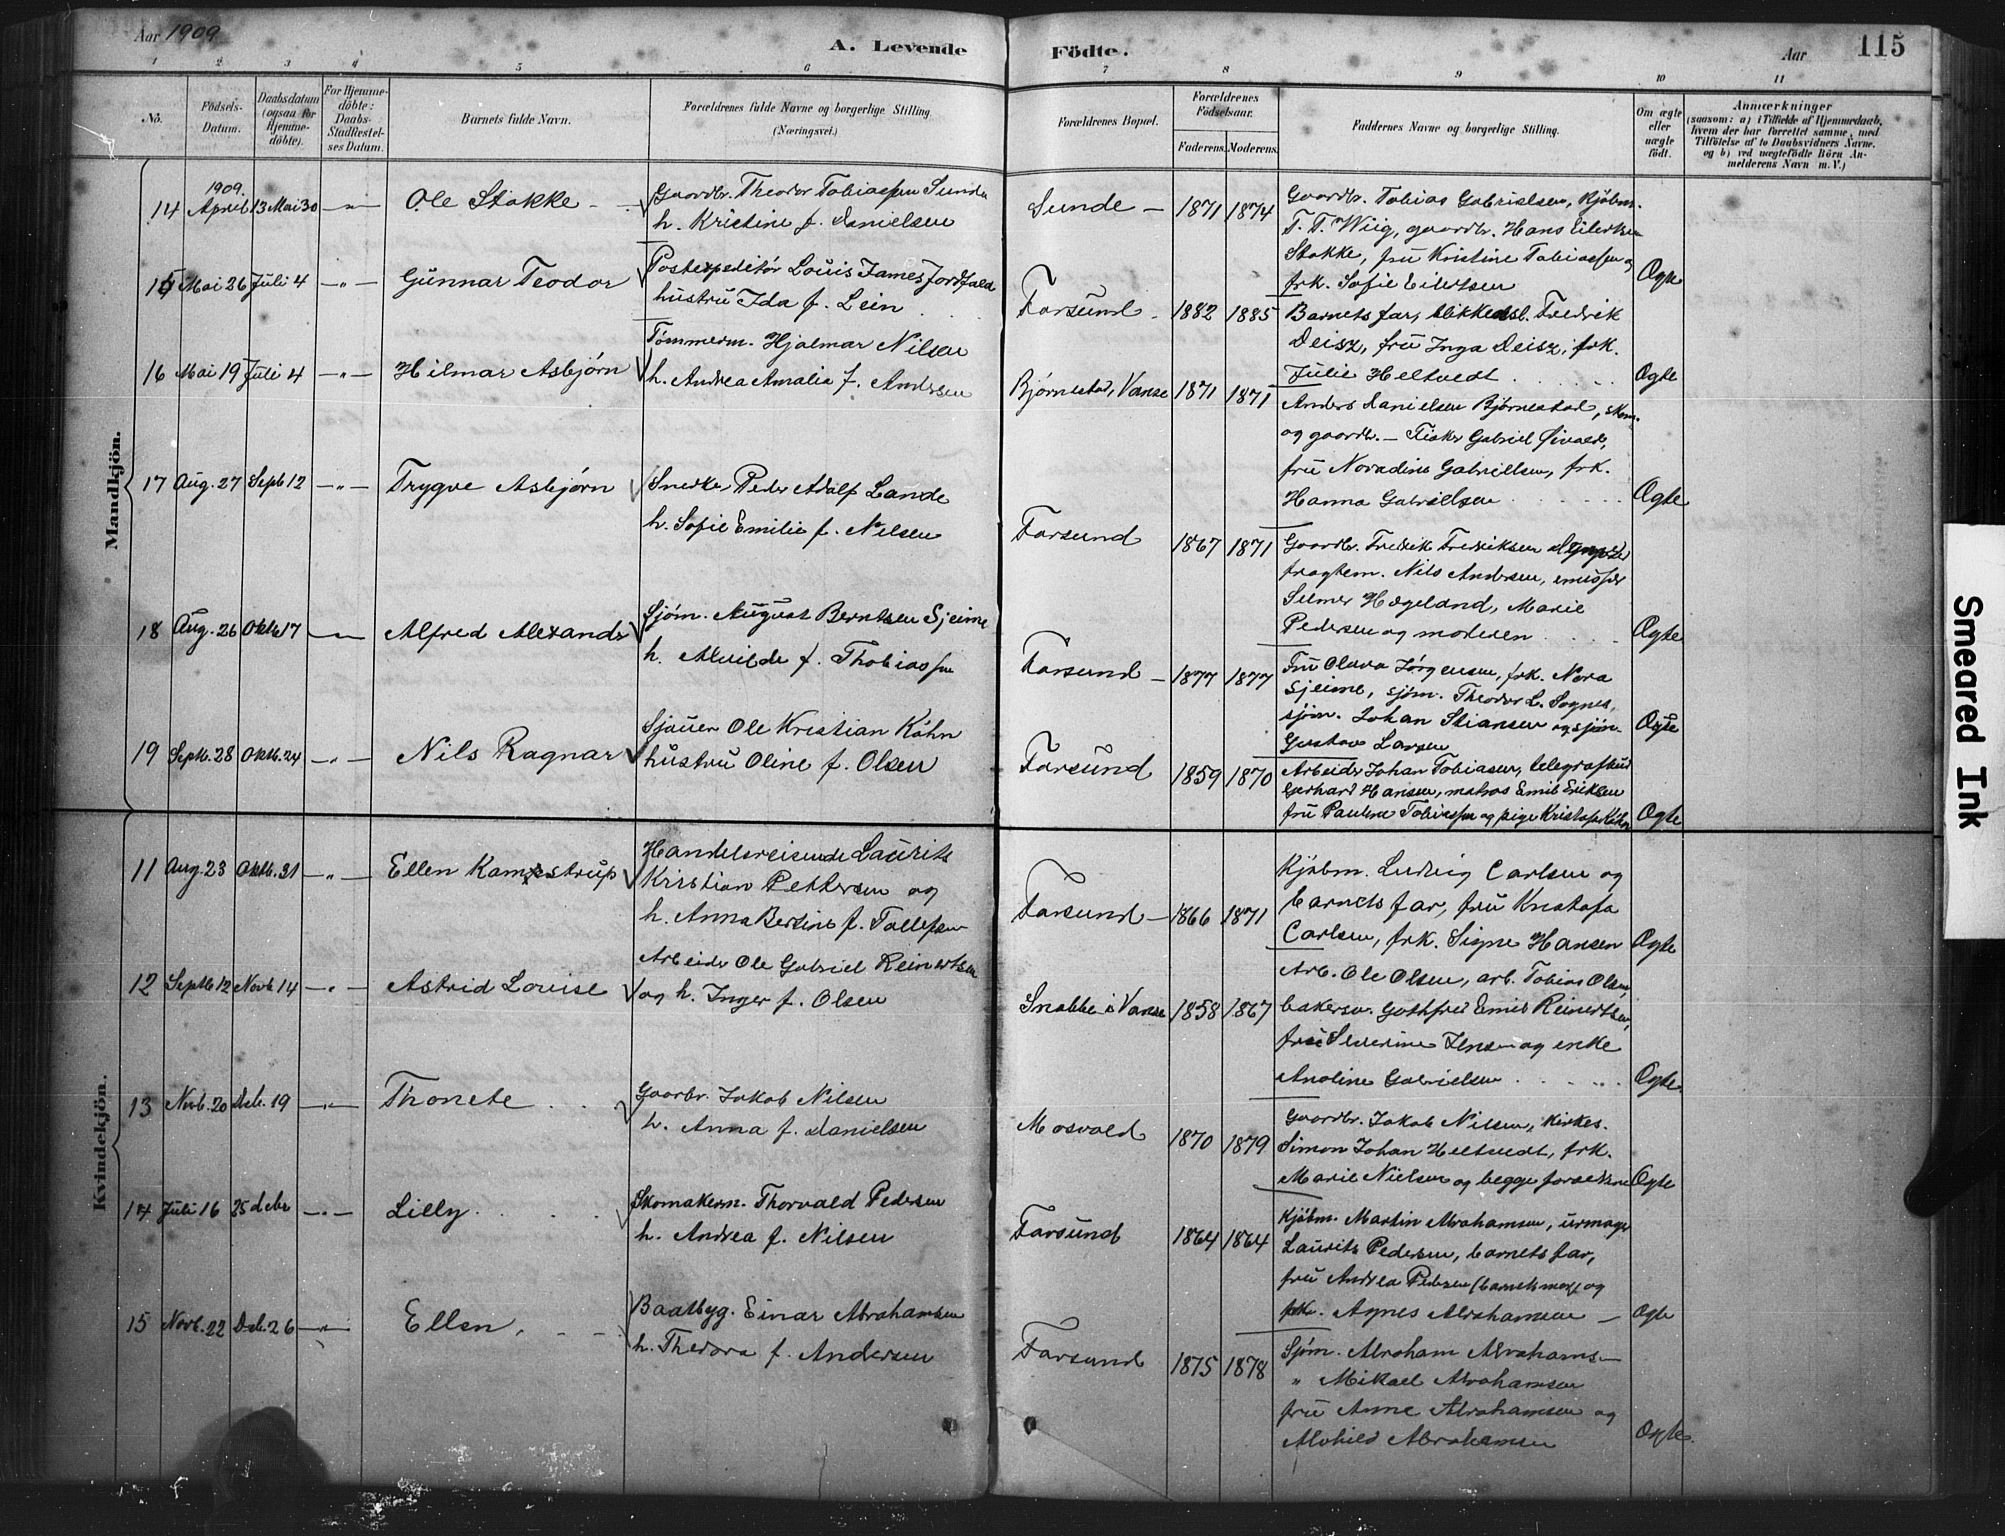 Aar 1909
A. Levende Fødte.
Aar
115
1 2 3 4 5 6 7 8 9 10 11
No.
Födsels-
Datum.
Daabsdatum
(ogsaa for
Hjemme-
döbte).
For Hjemme-
döbte:
Daabs-
Stadfæstel-
ses Datum.
Barnets fulde Navn.
Forældrenes fulde Navne og borgerlige Stilling
(Næringsvei.)
Forældrenes Bopæl.
Forældrenes
Födselsaar.
Faderens. Moderens.
Faddernes Navne og borgerlige Stilling.
Om ægte
eller
uægte
födt.
Anmærkninger
(saasom: a) i Tilfælde af Hjemmedaab,
hvem der har forrettet samme, med
Tilföielse af to Daabsvidners Navne.
og b) ved uægtefödte Börn An-
melderens Navn m. V.)
Mandkjön.
1909.
14 April 13 Mai 30 — " — Ole Stokke
Gaardbr. Theodor Tobiassen Sunde
h. Kristine f. Danielsen
Sunde — 1871 1874
Gaardbr. Tobias Gabrielsen, Kjøbm.
T. T. Wiig, gaardbr. Hans Eilertsen
Stokke, fru Kristine Tobiassen og
frk. Sofie Eilertsen
Ægte
15 Mai 26 Juli 4 — " — Gunnar Teodor
Postexpeditør Louis James Jordfald
hustru Ida f. Lein
Farsund 1882 1885
Barnets far, blikkensl. Fredrik
Deisz, fru Inga Deisz, frk.
Julie Heltvedt
Ægte
16 Mai 19 Juli 4 — " — Hilmar Asbjørn
Tømmerm. Hjalmar Nilsen
h. Andrea Amalia f. Andersen
Bjørnestad, Vanse 1871 1871
Anders Danielsen Bjørnestad, skom.
og gaardb. — Fisker Gabriel
fru Novadine Gabrielsen, frk.
Hanna Gabrielsen
Ægte
17 Aug. 27 Sept 12 — " — Trygve Asbjørn
Snedker Peder Adolf Lande
h. Sofie Emilie f. Nilsen
Farsund 1867 1871
Gaardbr. Fredrik Fredriksen
fragtem. Nils Andersen,
Selmer Hægeland, Marie
Pedersen og moderen
Ægte
18 Aug. 26 Oktb 17 — " — Alfred Alexander
Sjøm. August Berntsen Sjeime
h. Alvilde f. Thobiassen
Farsund — 1877 1877
Fru Olava Jørgensen, frk. Nora
Sjeime, sjøm. Theodor L. Sognes,
sjøm. Johan Stiansen og sjøm.
Gustav Larsen
Ægte
19 Septb. 28 Oktb. 24 — " — Nils Ragnar
Sjauer Ole Kristian Köhn
hustru Oline f. Olsen
Farsund 1859 1870
Arbeider Johan Tobiassen, telegrafbud
Gerhard Hansen, matros Emil Eriksen
fru Pauline Tobiassen og pige Kristofa Köhn
Ægte
Kvindekjön.
11 Aug. 23 Oktb. 31 — " — Ellen Kamstrup
Handelsreisende Laurits
Kristian Pettersen og
h. Anna Bertine f. Tollefsen
Farsund — 1866 1871
Kjøbm. Ludvig Carlsen og
barnets far, fru Kristofa
Carlsen, frk. Signe Hansen
Ægte
12 Septb 12 Novb 14 — " — Astrid Louise
Arbeider Ole Gabriel Reinertsen
og h. Inger f. Olsen
Snekke i Vanse 1858 1867
Arb. Ole Olsen, arb. Tobias Olsen,
bakersv. Gothfred Emil Reinertsen,
fru Severine Jensen og enke
Anoline Gabrielsen
Ægte
13 Novb. 20 Deb. 19 — " — Thonete
Gaarbr. Jakob Nilsen
h. Anna f. Danielsen
Mosvold 1870 1879
Gaardbr. Jakob Nilsen, kirkes.
Simon Johan Heltvedt, frk.
Marie Nielsen og begge forældrene
Ægte
14 Juli 16 25 debr — " — Lilly
Skomakerm. Thorvald Pedersen
h. Andrea f. Nilsen
Farsund 1864 1864
Kjøbm. Martin Abrahamsen, urmager
Laurits Pedersen, barnets far,
fru Andrea Pedersen (barnets mor) og
frk. Agnes Abrahamsen
Ægte
15 Novb. 22 Deb. 26 — " — Ellen
Baatbyg. Einar Abrahamsen
h. Theodora f. Andersen
Farsund 1875 1878
Sjøm. Abraham Abrahams—
" Mikael Abrahamsen
fru Anne Abrahamsen og
Alvhild Abrahamsen
Ægte.
Smeared Ink